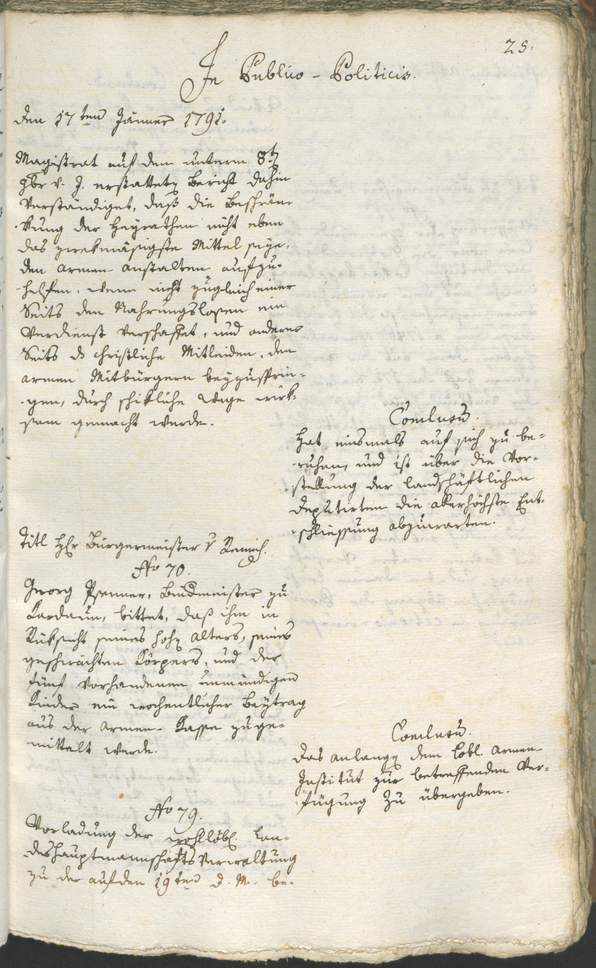 25.
In Publico-Politicis.
den 17ten Jänner 1791.
Magistrat auf den unterm 8t
9br v. J. erstatteten Bericht dahin
verständiget, daß die Beschrän-
kung der Heyrathen nicht eben
das zwekmäsigste Mittel seye,
den armen-anstalten aufzu-
helfen, wenn nicht zugleich einer
Seits den Nahrungslosen ein
Verdienst verschaffet, und anderer
Seits das christliche Mitleiden, den
armen Mitbürgern beyzusprin-
gen, durch schikliche Wege wirk-
sam gemacht werde.
Conclusum.
Hat einsmals auf sich zu be-
ruhen, und ist über die Vor-
stellung der landschäftlichen
Deputirten die allerhöchste Ent-
schliessung abzuwarten.
Titl Hr Bürgermeister v Remich.
No 70.
Georg Psenner, Bindmeister zu
Kardaun, bittet, daß ihm in
Rüksicht seines hohen alters, seines
geschwachten Körpers, und der
fünf vorhandenen unmündigen
Kinder ein wochentlicher Beytrag
aus der armen-Kasse zuge-
mittelt werde.
Conclusum.
Das anlangen dem löbl. Armen-
Institut zur betreffenden Ver-
fügung zu übergeben.
No 79.
Vorladung der wohllöbl. Lan-
deshauptmannschafts Verwaltung
zu der auf den 19ten d. M. be-